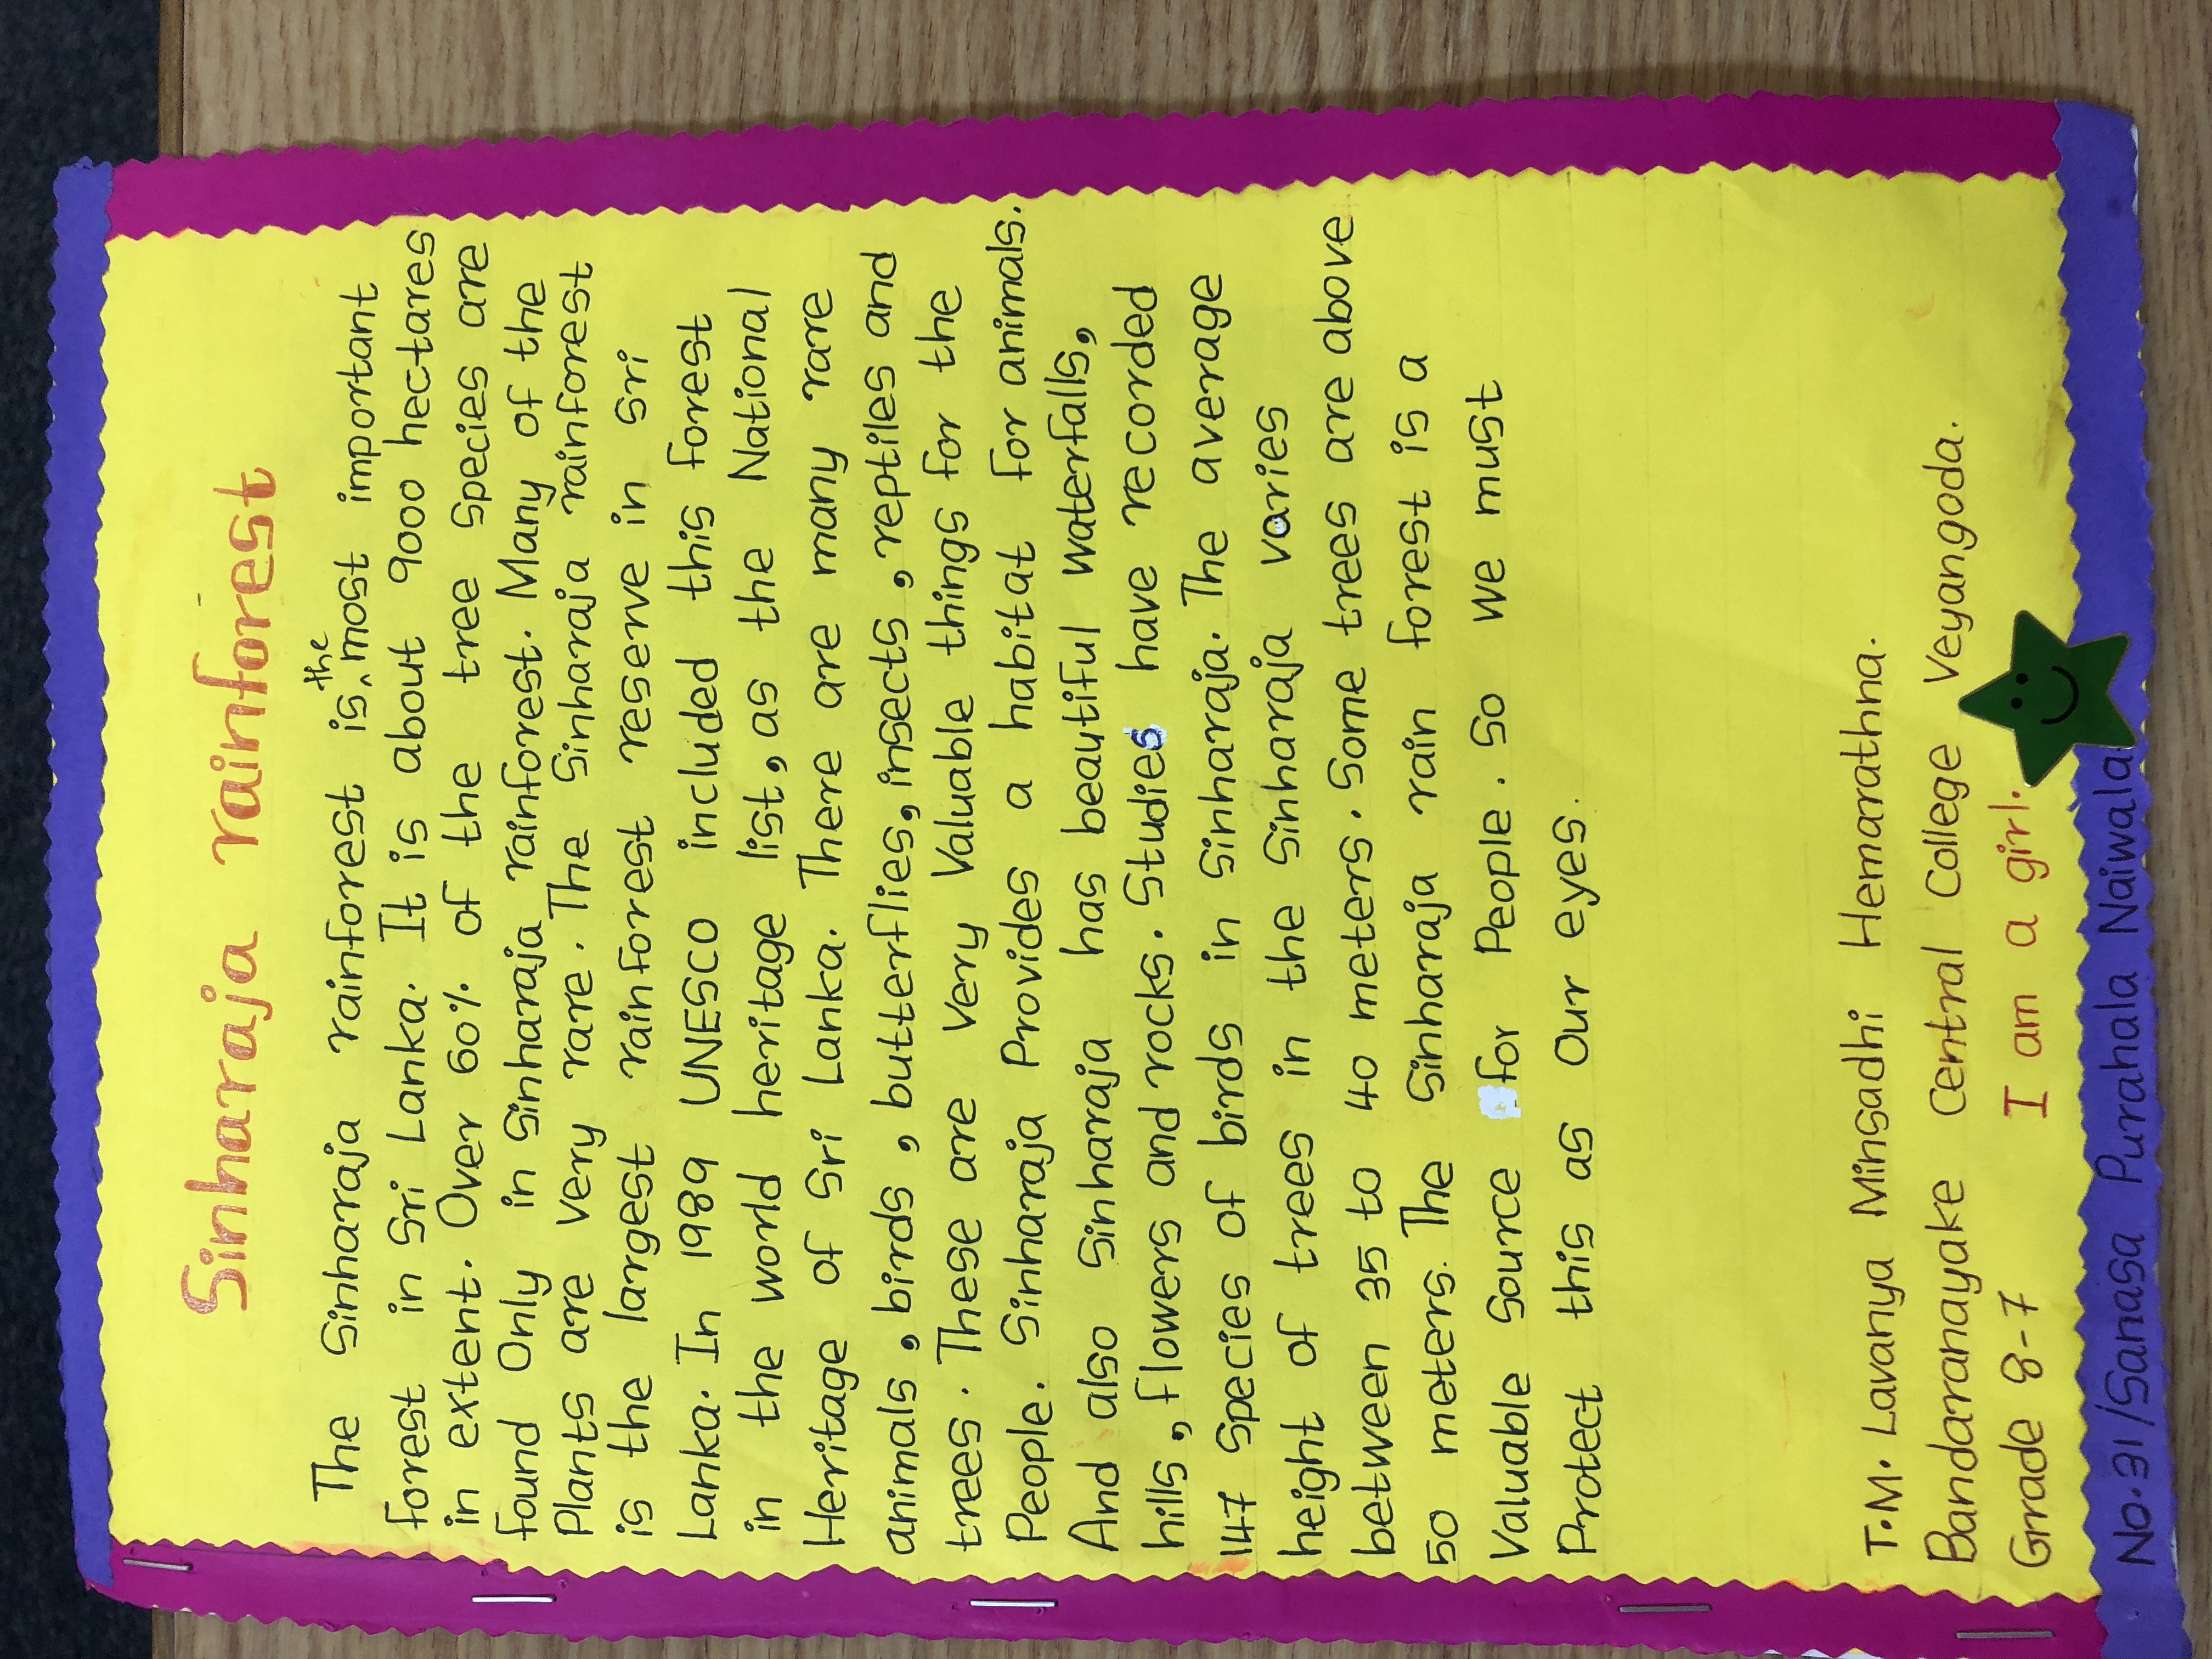 Sinharaja rainforest
The Sinharaja rainforest is the most important
forest in Sri Lanka. It is about 9000 hectares
in extent. Over 60% of the tree species are
found Only in Sinharaja rainforest. Many of the
Plants are very rare. The Sinharaja rainforest
is the largest rainforest reserve in Sri
Lanka. In 1989 UNESCO included this forest
in the world heritage list, as the National
Heritage of Sri Lanka. There are many rare
animals, birds, butterflies, insects, reptiles and
trees. These are very Valuable things for the
People. Sinharaja Provides a habitat for animals.
And also Sinharaja has beautiful waterfalls,
hills, flowers and rocks. Studies have recorded
147 Species of birds in Sinharaja. The average
height of trees in the Sinharaja varies
between 35 to 40 meters. Some trees are above
50 meters. The Sinharaja rain forest is a
Valuable Source for People. So we must
Protect this as Our eyes.
T.M. Lavanya Minsadhi Hemarathna.
Bandaranayake Central College Veyangoda.
Grade 8-7 I am a girl.
No.31/Sanasa Purahala Naiwala